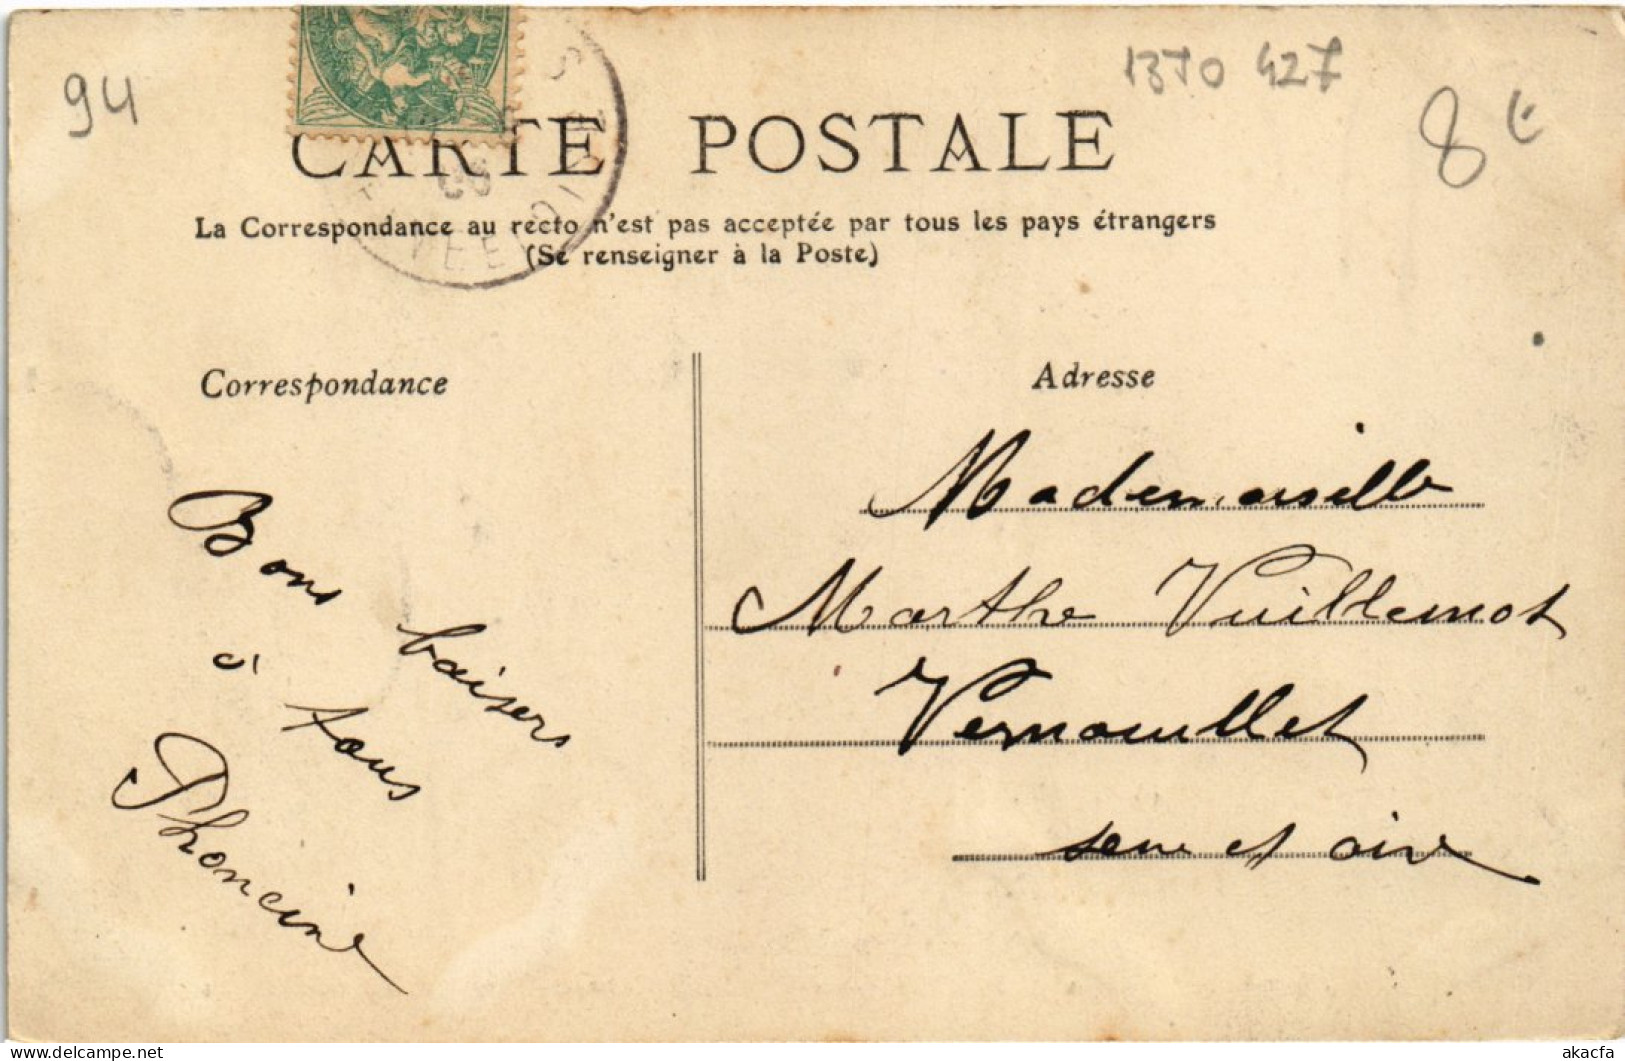 94
13JO 427
8 €
CARTE POSTALE
La Correspondance au recto n'est pas acceptée par tous les pays étrangers
(Se renseigner à la Poste)
Correspondance
Adresse
Bons baisers
à tous
Phoncine
Mademoiselle
Marthe Vuillemot
Vernouillet
seine et oise
akacfa